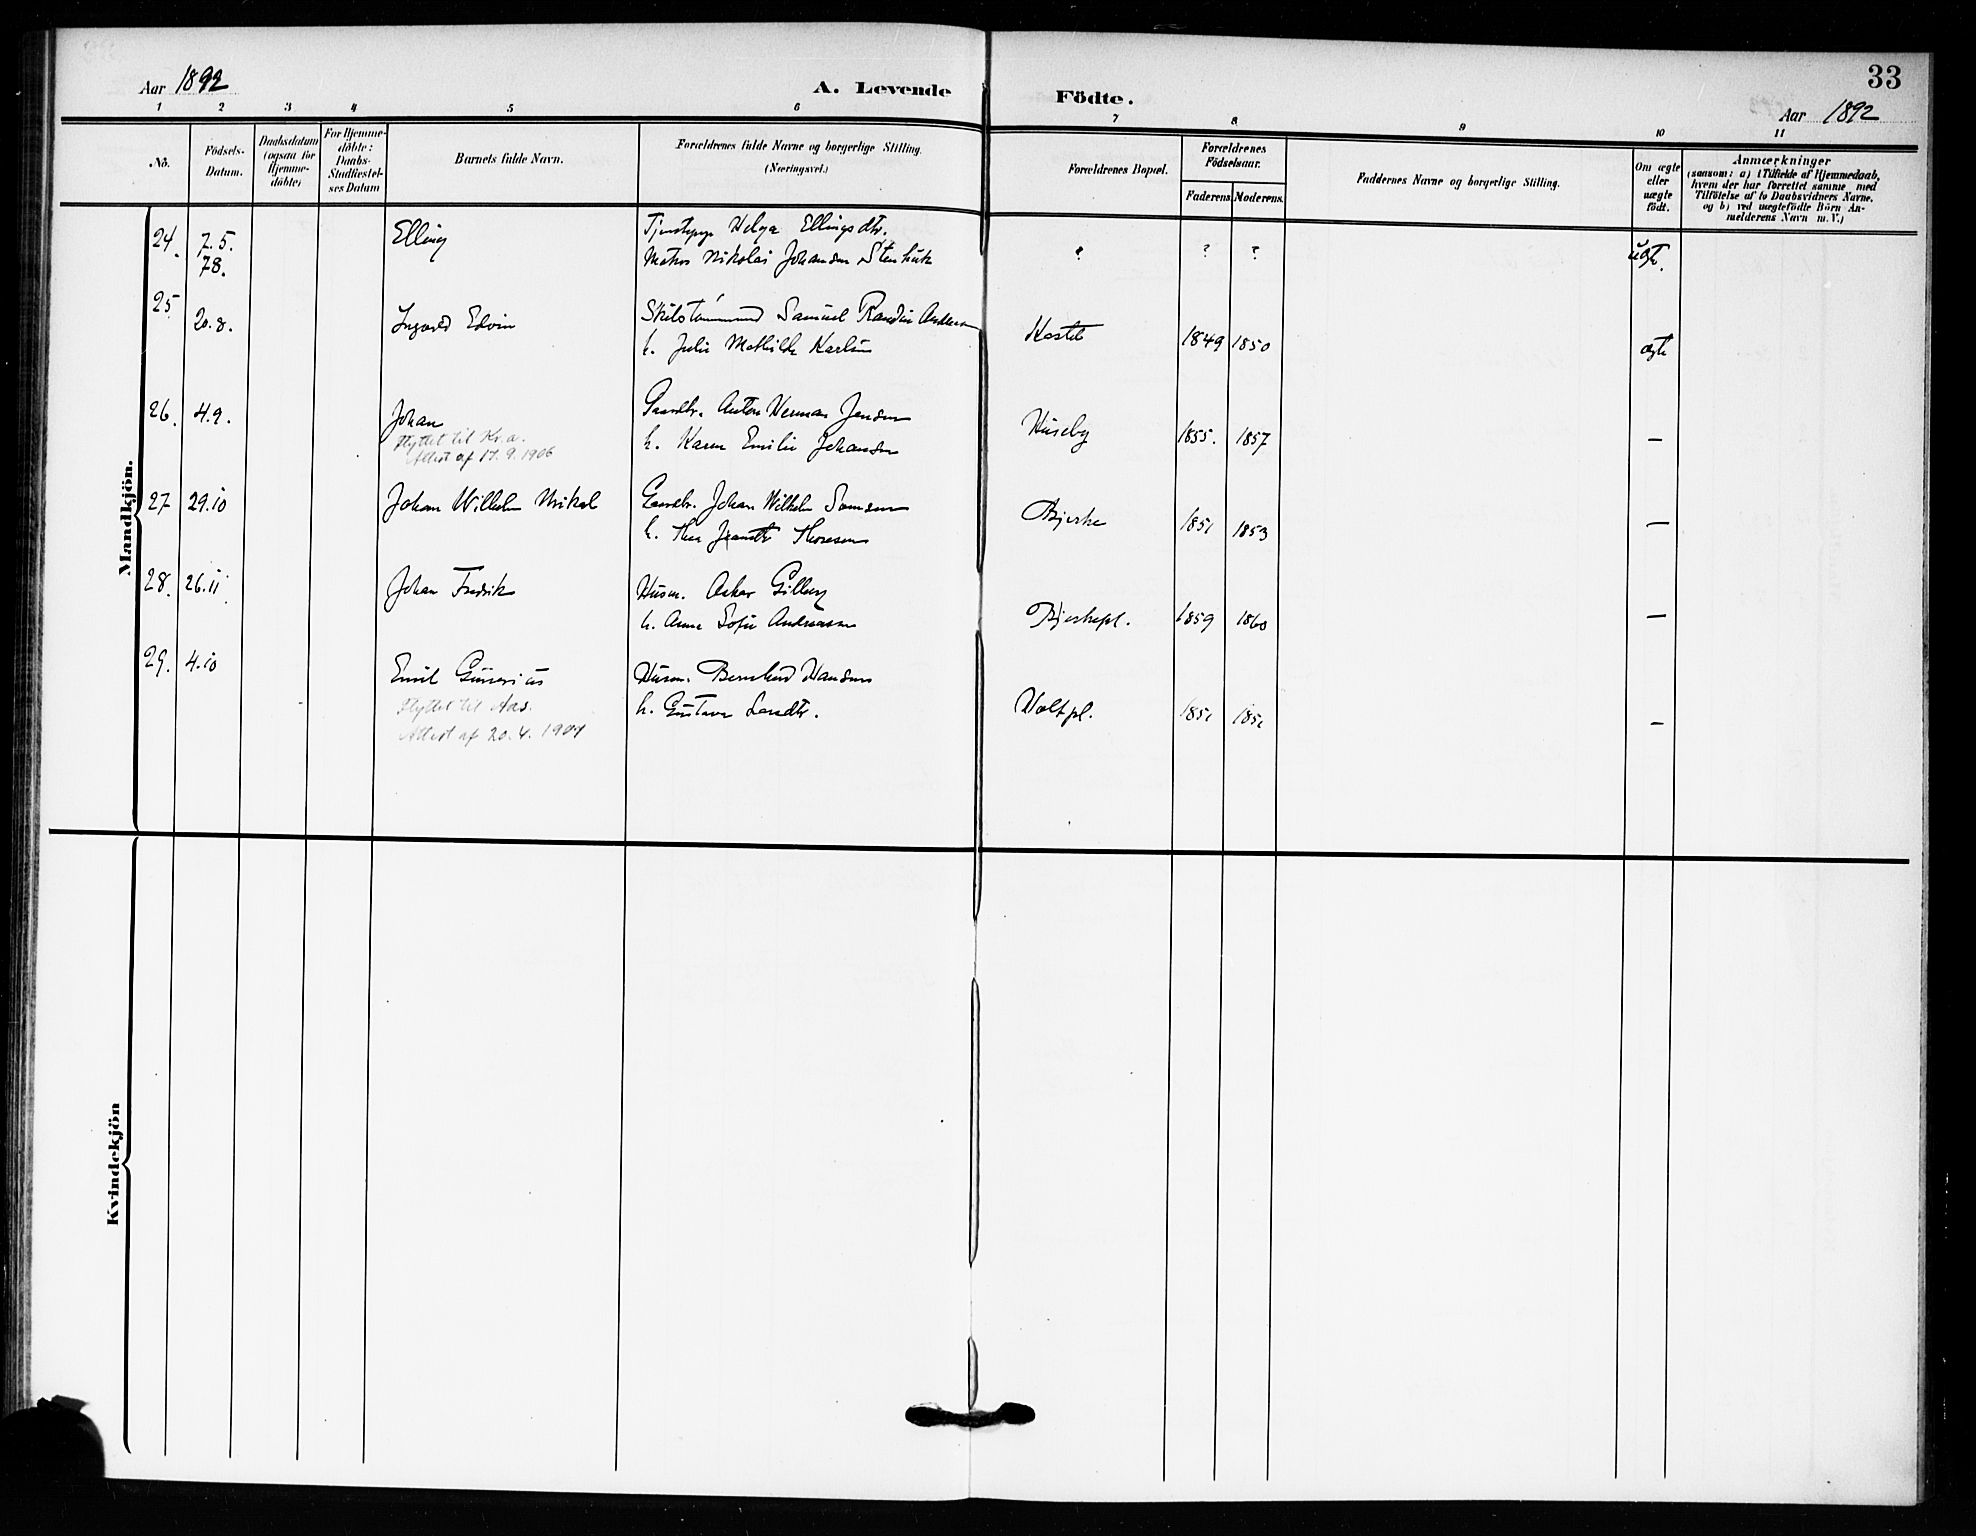 33
Aar 1892
A. Levende Födte.
Aar 1892
1 2 3 4 5 6 7 8 9 10 11
No.
Födsels-Datum.
Daabsdatum (ogsaa for Hjemme-döbte)
For Hjemme-döbte: Daabs-Stadfæstel-ses Datum
Barnets fulde Navn.
Forældrenes fulde Navne og borgerlige Stilling.
(Næringsvei.)
Forældrenes Bopæl.
Forældrenes Födselsaar.
Faderens. Moderens.
Faddernes Navne og borgerlige Stilling.
Om ægte eller uægte födt.
Anmærkninger
(saasom: a) i Tilfælde af Hjemmedaab, hvem der har forrettet samme med Tilföielse af to Daabsvidners Navne. og b) ved uægtefödte Börn An-melderens Navn m. V.)
Mandkjön.
24. 7.5. Elling Tjenstepige Helga Ellingsdtr.
78. Matros Nikolai Johansen Stenhuk ? ? ? uægte.
25 20.8. Ingvald Edvin Samuel Andersen
h. Julie Mathilde Karlsen 1849 1850 ægte
26. 4.9. Johan Gaardbr. Anton Herman Jensen
Flyttet til Kr.a. h. Karen Emilie Johansen Huseby 1855. 1857 —
Attest af 17.9.1906
27 29.10 Johan Wilhelm Gaardbr. Johan Wilhelm
h. Thea Thoresen Bjerke 1851 1853 —
28. 26.11 Johan Fredrik Husm. Oskar
h. Anna Sofie Andreasen Bjerkepl. 1859 1860 —
29. 4.10 Emil Gunerius Husm. Bernhard Hansen
Flyttet til Aas. h. Gustava Larsdtr. Holtpl. 1851 1851 —
Attest af 20.4.1907
Kvindekjön